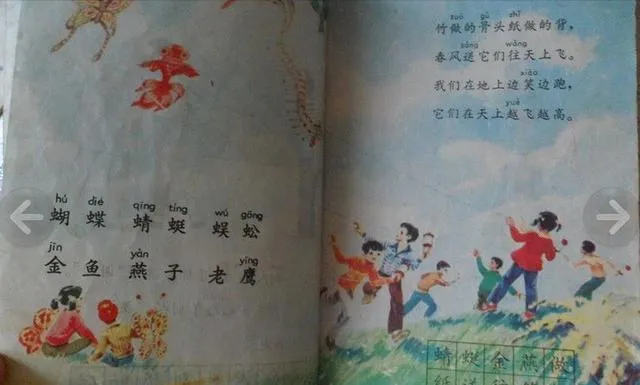 hú dié qīng tíng wú gōng
蝴 蝶 蜻 蜓 蜈 蚣
jīn yàn yīng
金 鱼 燕 子 老 鹰
zuò gǔ zhǐ
竹做的骨头纸做的背，
sòng wǎng
春风送它们往天上飞。
xiào
我们在地上边笑边跑，
yuè
它们在天上越飞越高。
蜻 蜓 金 燕 做
纸 送